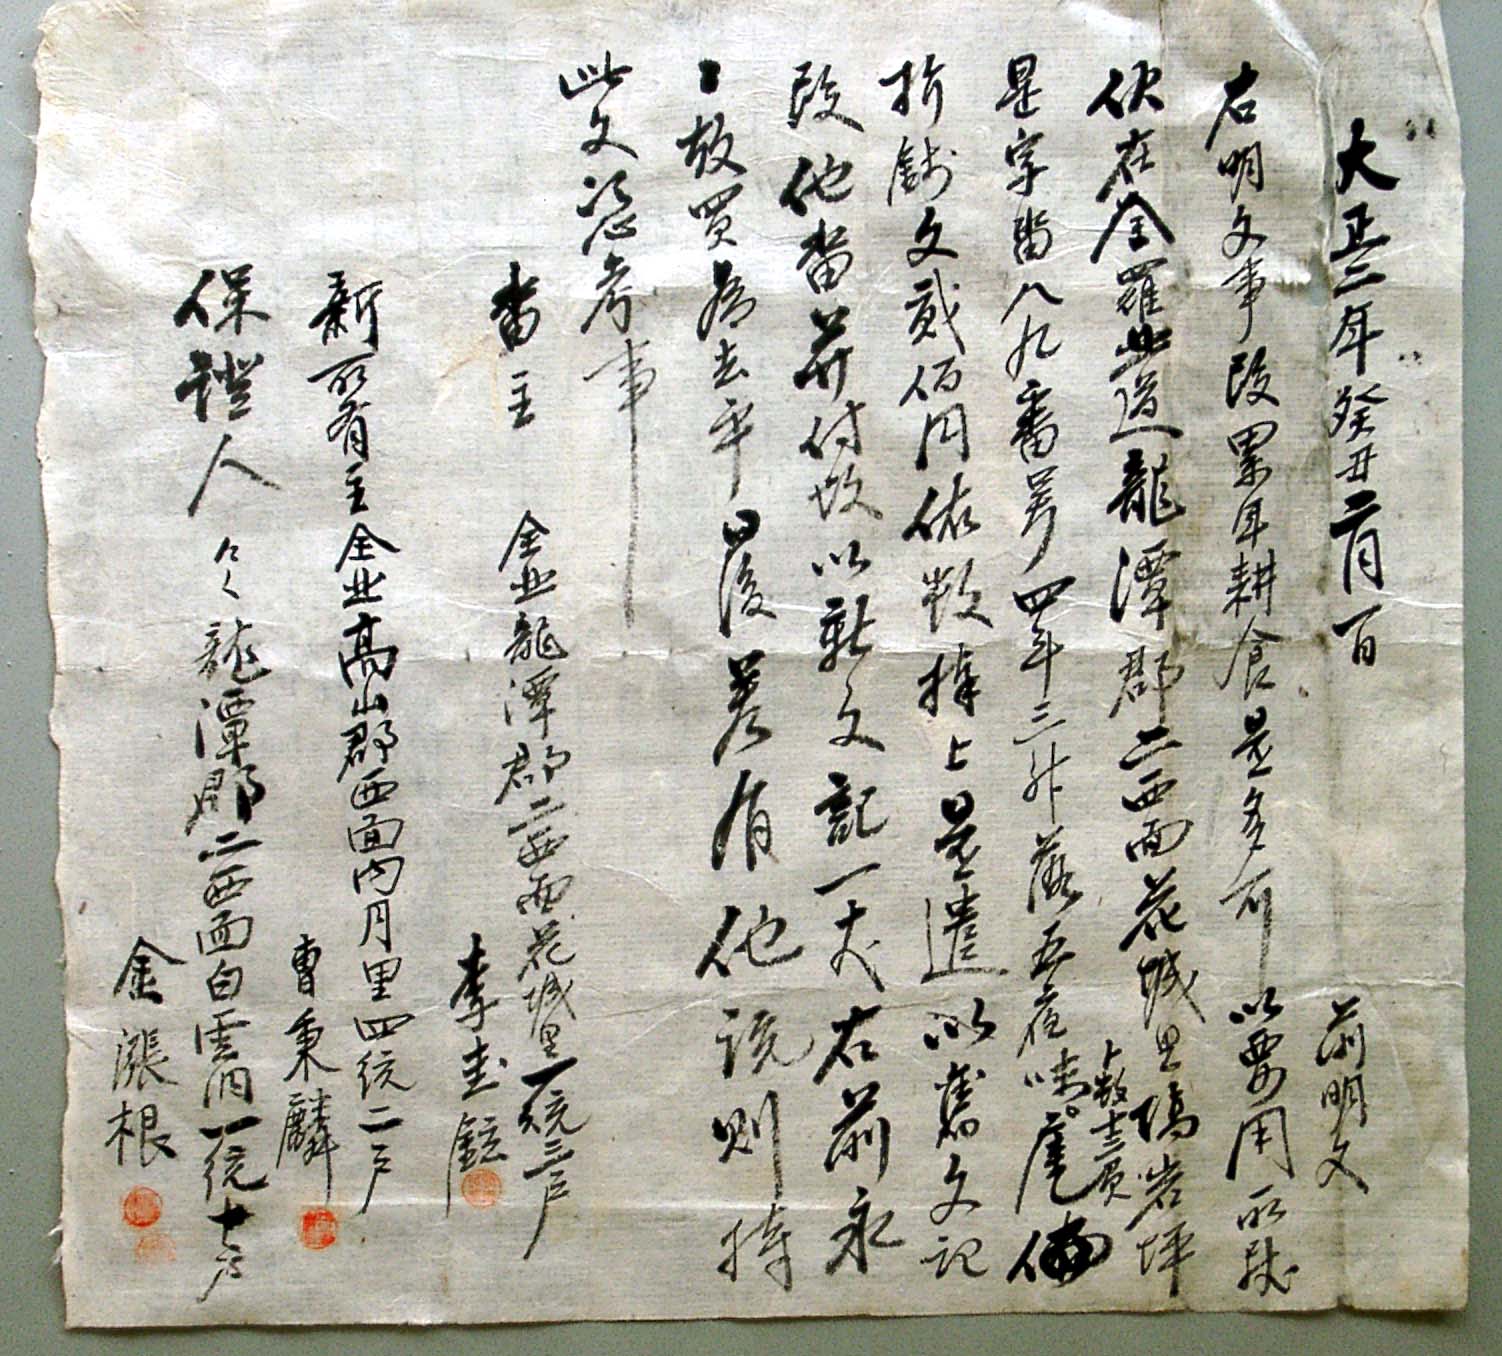 大正二年癸丑二月 日 前明文
右明文事段累年耕食是多可以要用所致
伏在全羅北道龍潭郡二西面花城里 岩坪
是字畓八九番 四年三斗落五夜味 卜數十三負 庫
折錢文貳佰円依數捧上是遣以舊文記
段他畓幷付故以新文記一丈右前永
永故買爲去乎日後若有他說則持
此文憑考事
畓主 全北龍潭郡二西面花城里一統三戶
李圭鉉
新所有主全北高山郡西面內月里四統二戶
曺秉麟
保證人 仝龍潭郡二西面白雲洞一統十戶
金漲根